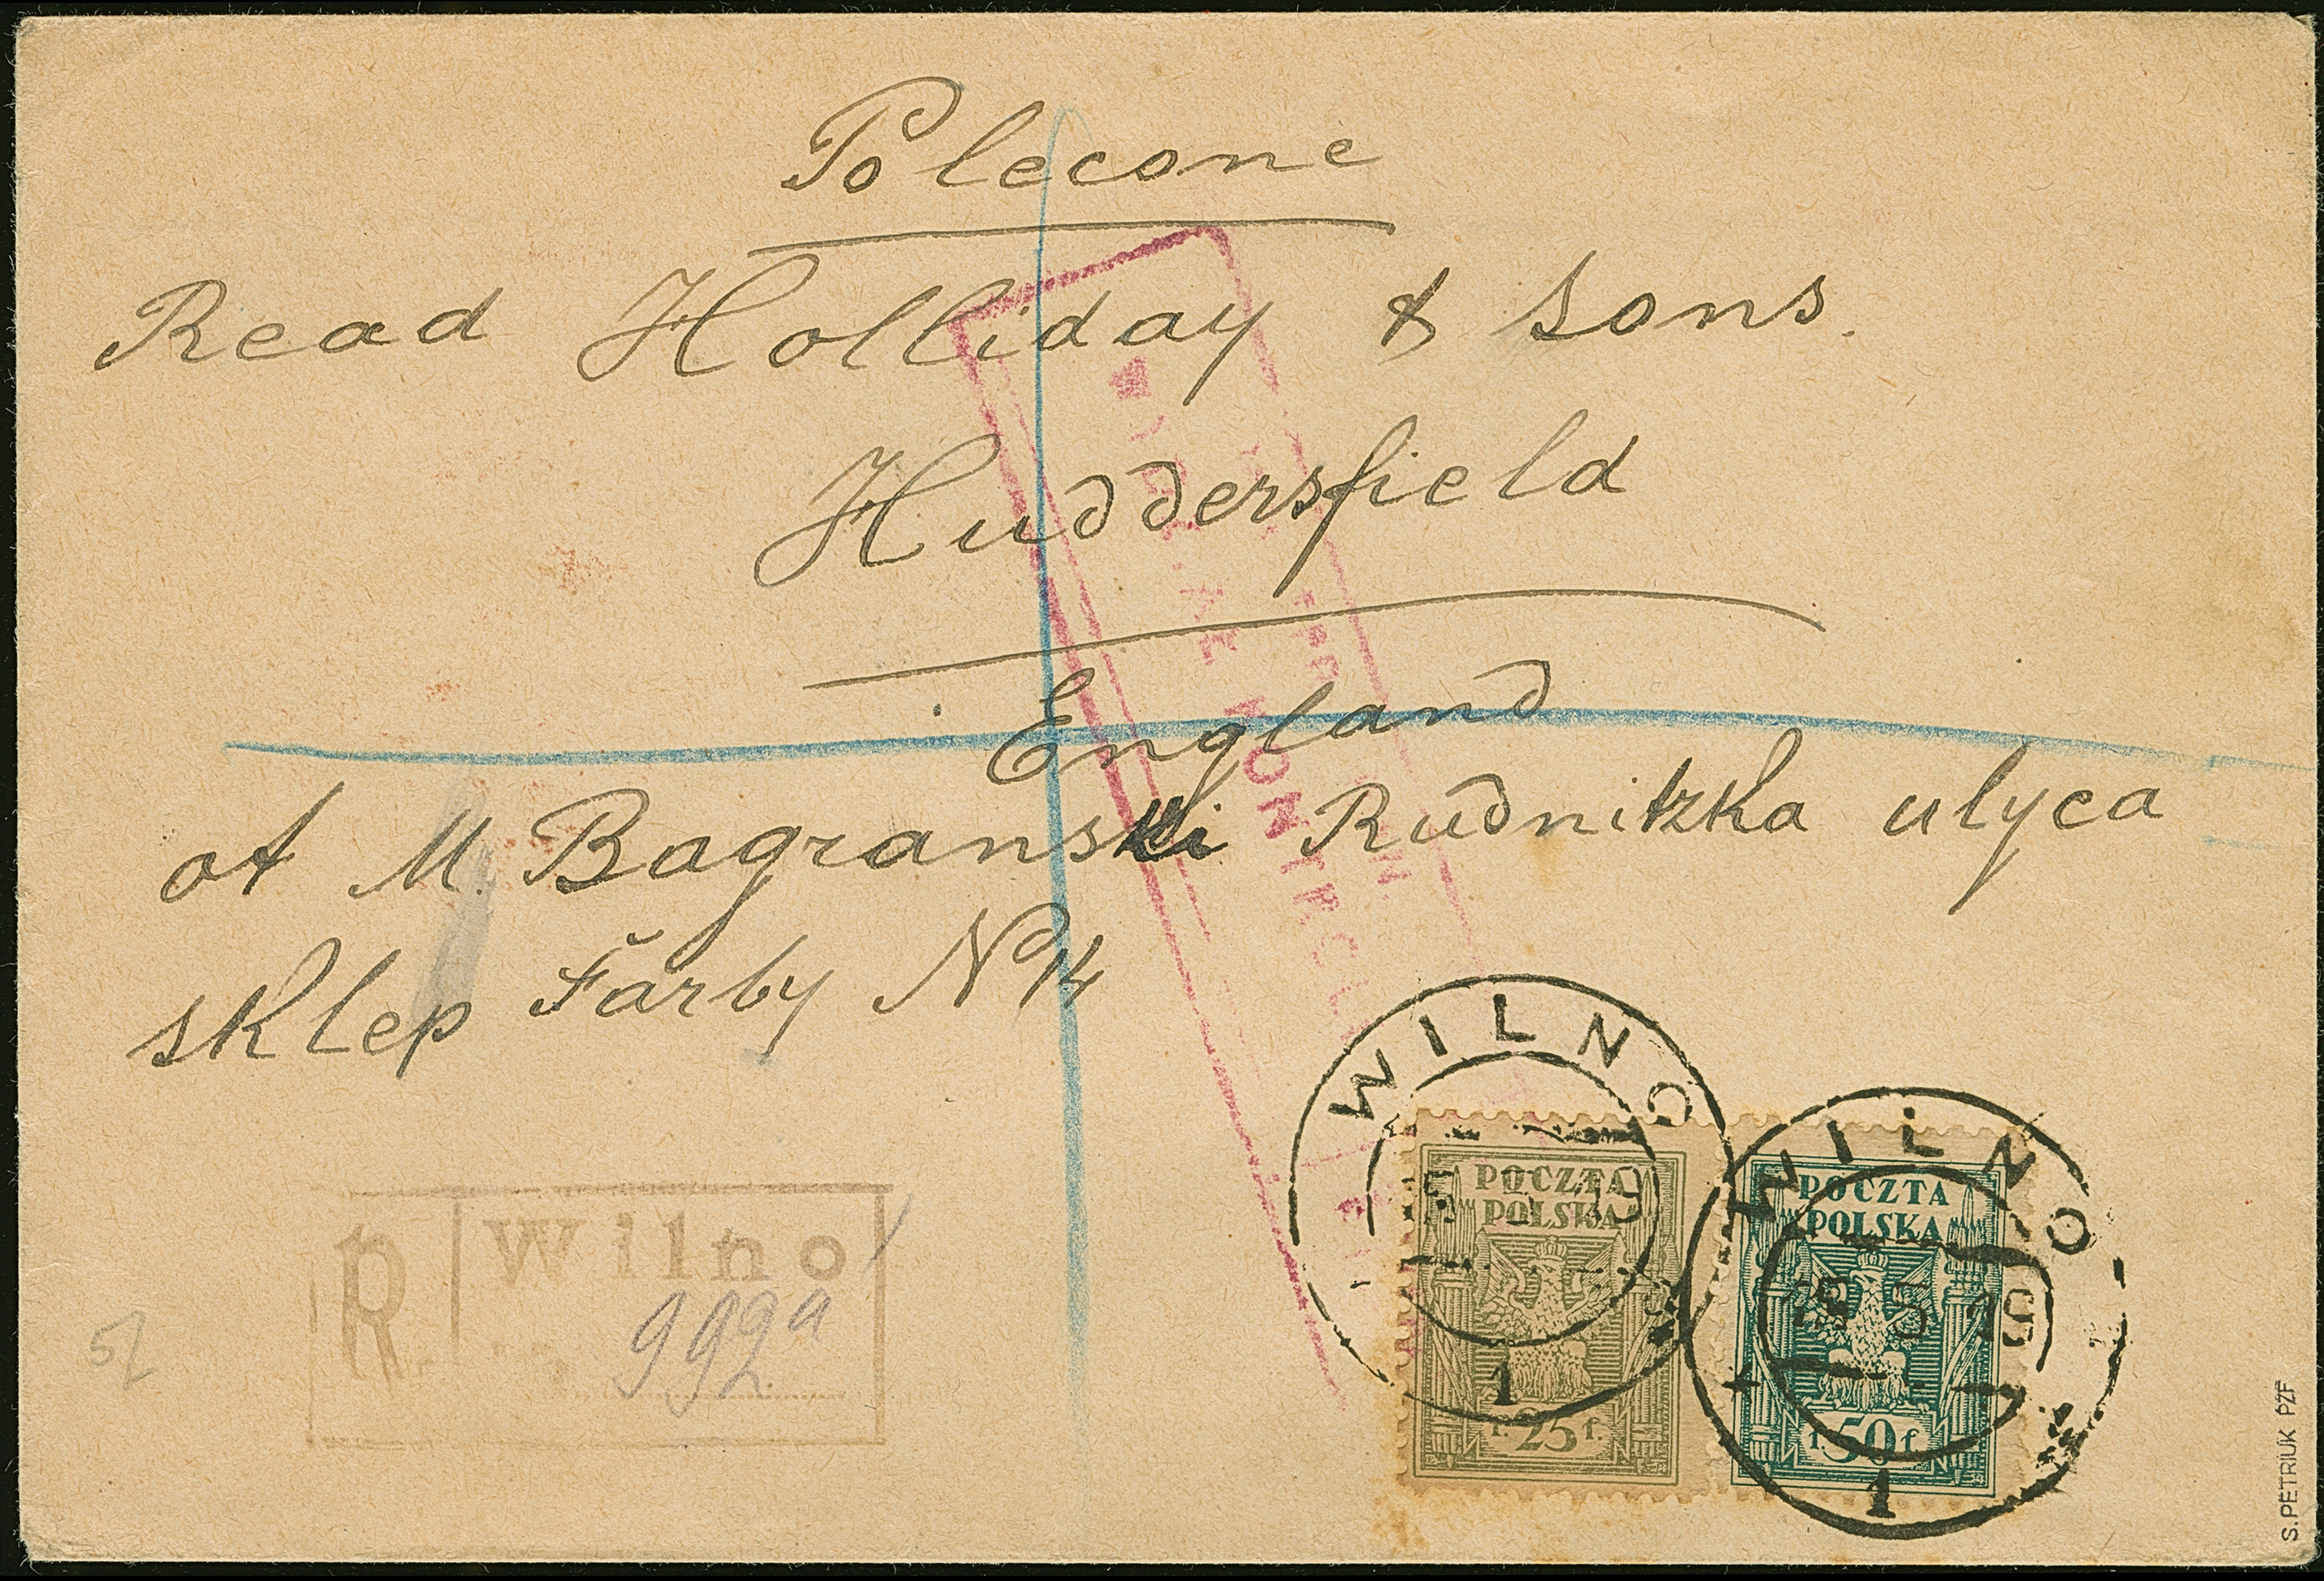 Polecone
Read Holliday & Sons.
Huddersfield
England
ot M. Bagranski Rudnitzka ulyca
sklep Färby N 14
R Wilno
992a
52
WILNO
1
POCZTA
POLSKA
f. 25 f.
WILNO
5 19
1
POCZTA
POLSKA
f. 50 f.
KONTROLI
S. PETRIUK PZF